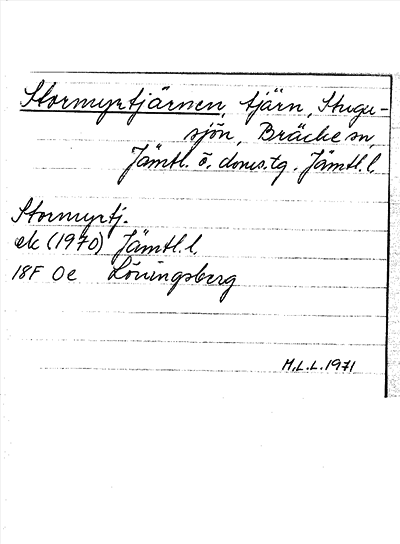 Stormyrtjärnen, tjärn, Stugu-
sjön, Bräcke sn,
Jämtl. ö. doms.tg. Jämtl. l.
Stormyrtj.
ek (1970) Jämtl. l.
18F 0e Löningsberg
M.L.L. 1971